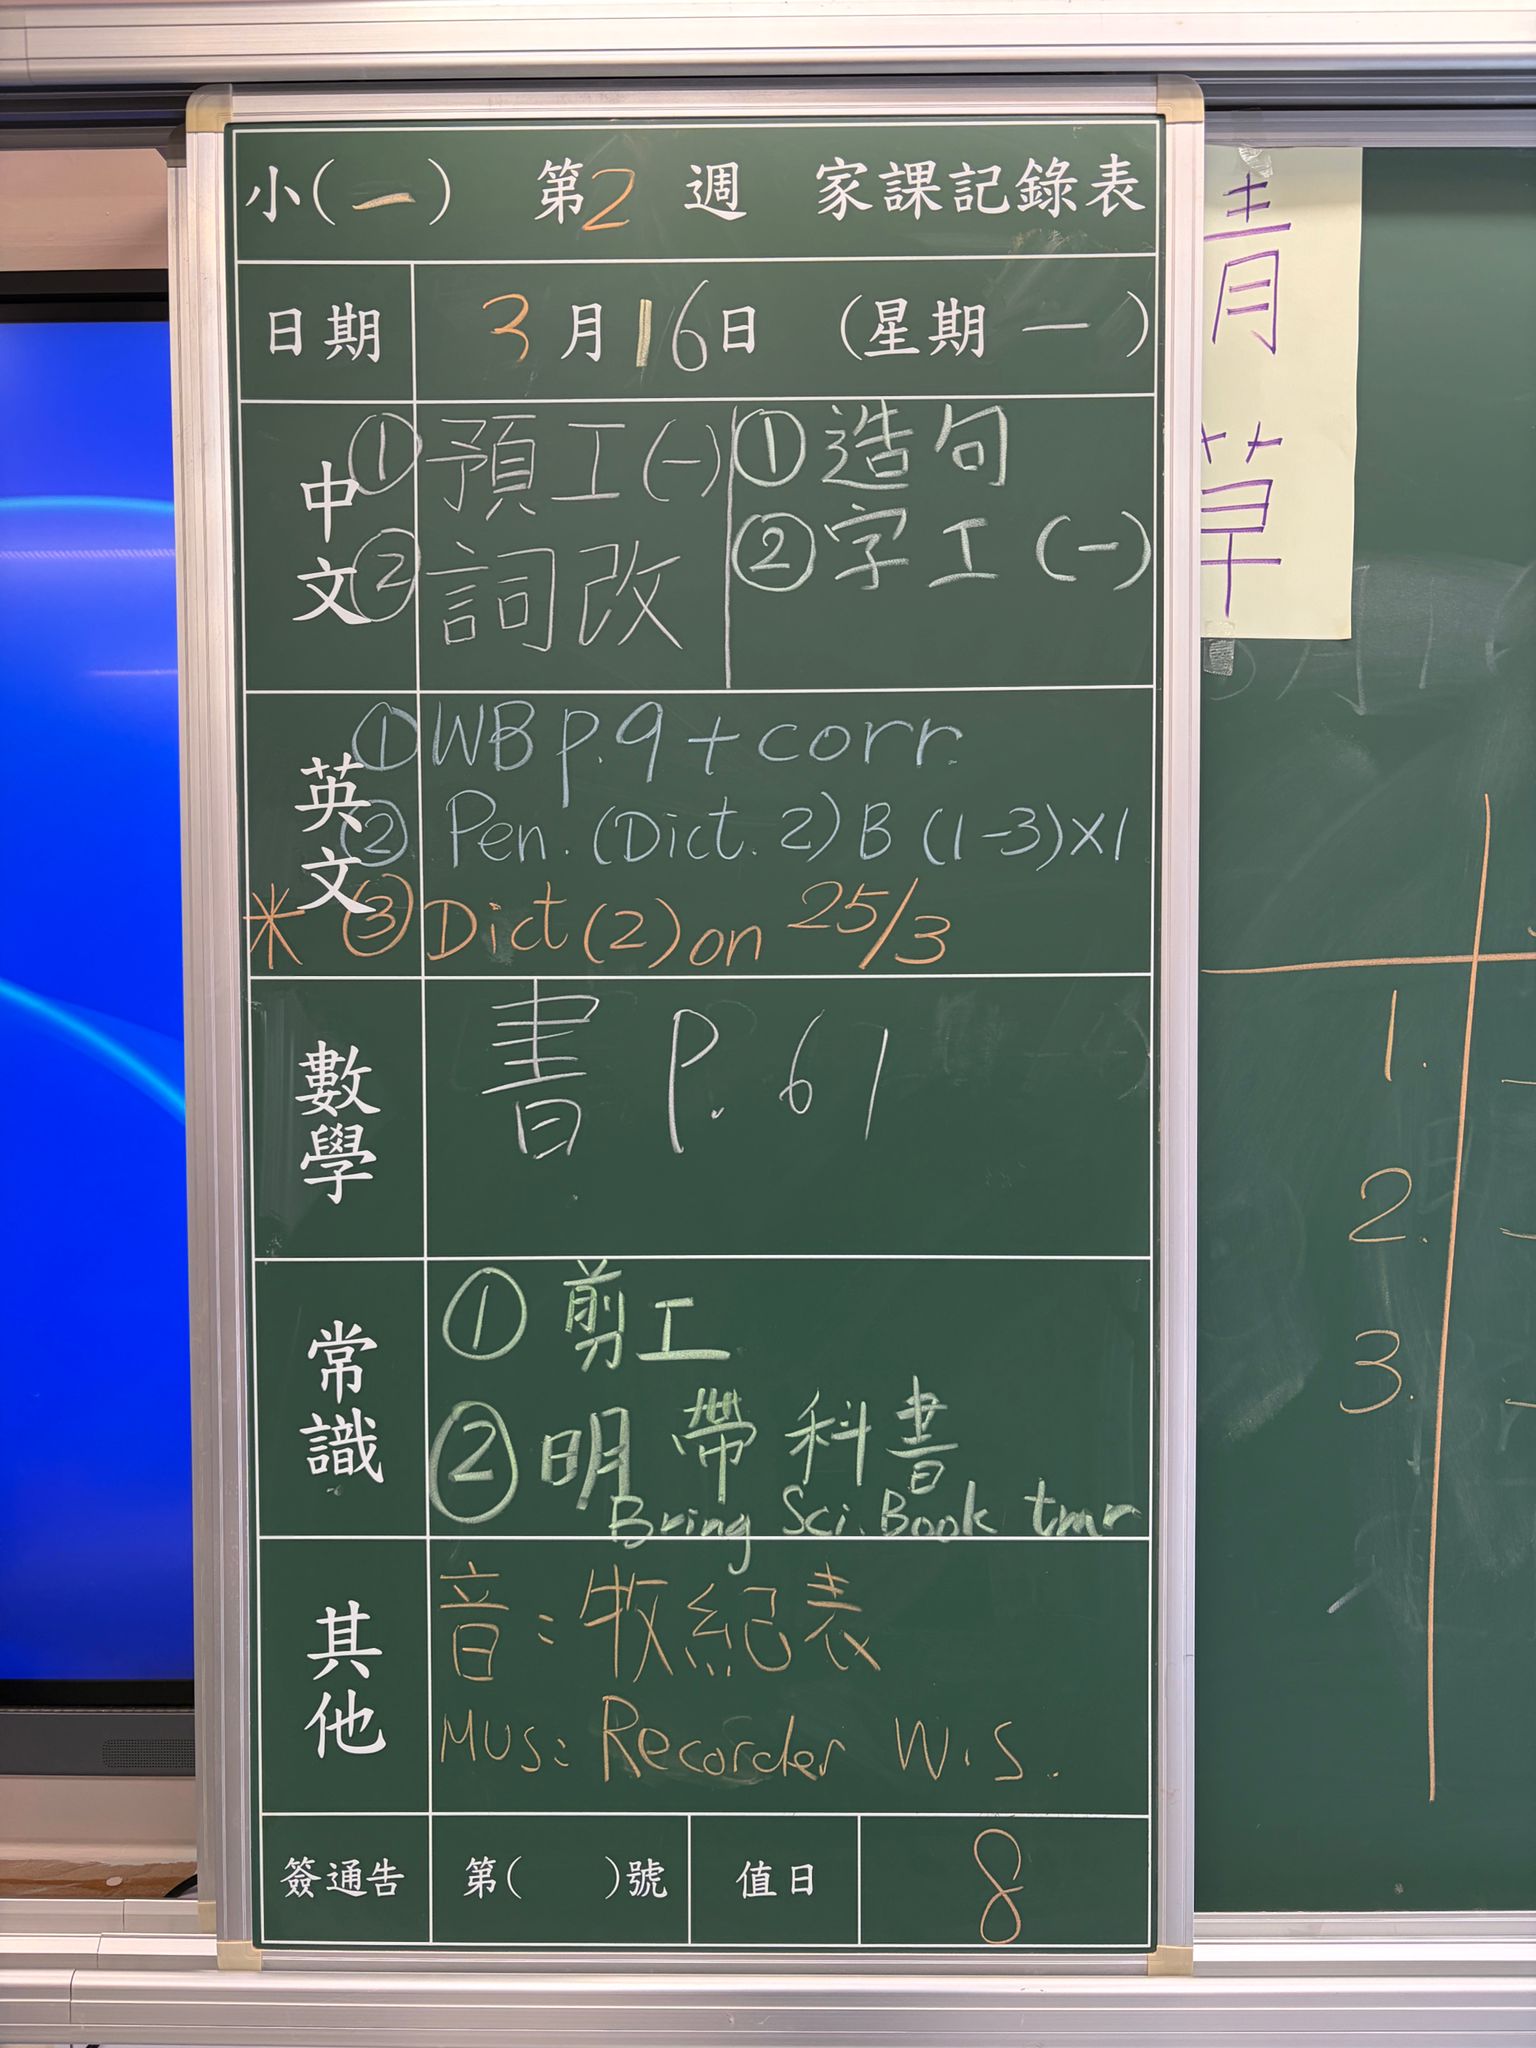 小(一) 第2週 家課記錄表
日期 3月16日 (星期一)
中文
① 預工(一)
② 詞改
① 造句
② 字工(一)
英文
① WB p.9 + corr.
② Pen. (Dict. 2) B (1-3)×1
* ③ Dict (2) on 25/3
數學
書 P. 61
常識
① 剪工
② 明帶科書
Bring Sci. Book tmr
其他
音:牧紀表
Mus: Recorder W.S.
簽通告 第( )號 值日 8
青
草
1.
2.
3.